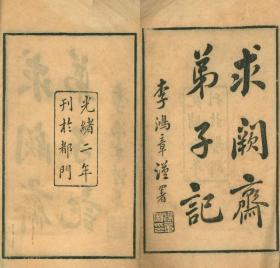 求闕齋
弟子記
李鴻章謹署
光緒二年
刊於都門